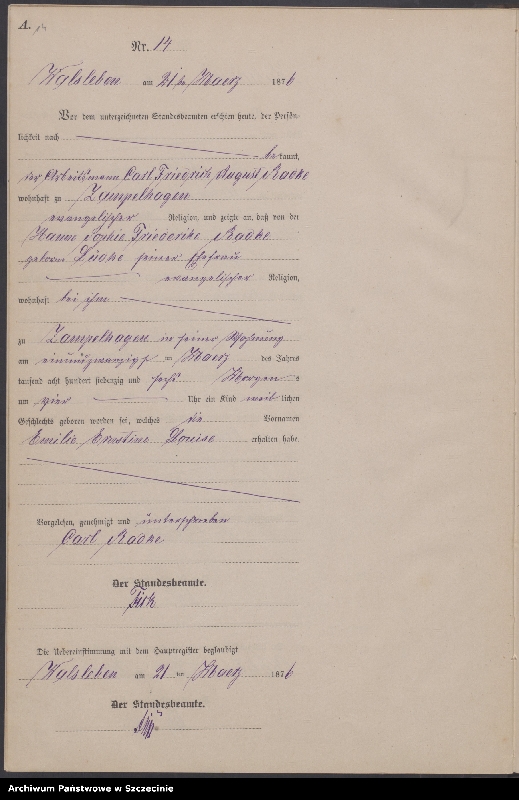 A. 14
Nr. 14
Wylsleben am 21 ten Maerz 1876
Vor dem unterzeichneten Standesbeamten erschien heute, der Persön-
lichkeit nach
bekannt,
der Arbeitsmann Carl Friedrich August Radke
wohnhaft zu Zampelhagen
evangelischer Religion, und zeigte an, daß von der
Hanne Sophie Friederike Radke
geboren seiner Ehefrau
evangelischer Religion,
wohnhaft bei ihm
zu Zampelhagen in seiner Wohnung
am einundzwanzigst en Maerz des Jahres
tausend acht hundert siebenzig und sechs Morgen s
um vier Uhr ein Kind weib lichen
Geschlechts geboren worden sei, welches die Vornamen
Emilie Ernstine Louise erhalten habe.
Vorgelesen, genehmigt und unterschrieben
Carl Radke
Der Standesbeamte.
Die Uebereinstimmung mit dem Hauptregister beglaubigt
Wylsleben am 21 ten Maerz 1876
Der Standesbeamte.
Archiwum Państwowe w Szczecinie